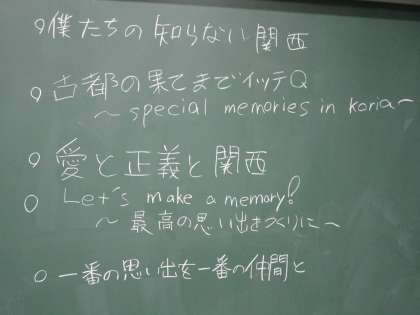 ○僕たちの知らない関西
○古都の果てまでイッテQ
～special memories in koria～
○愛と正義と関西
○Let's make a memory!
～最高の思い出をつくりに～
○一番の思い出を一番の仲間と